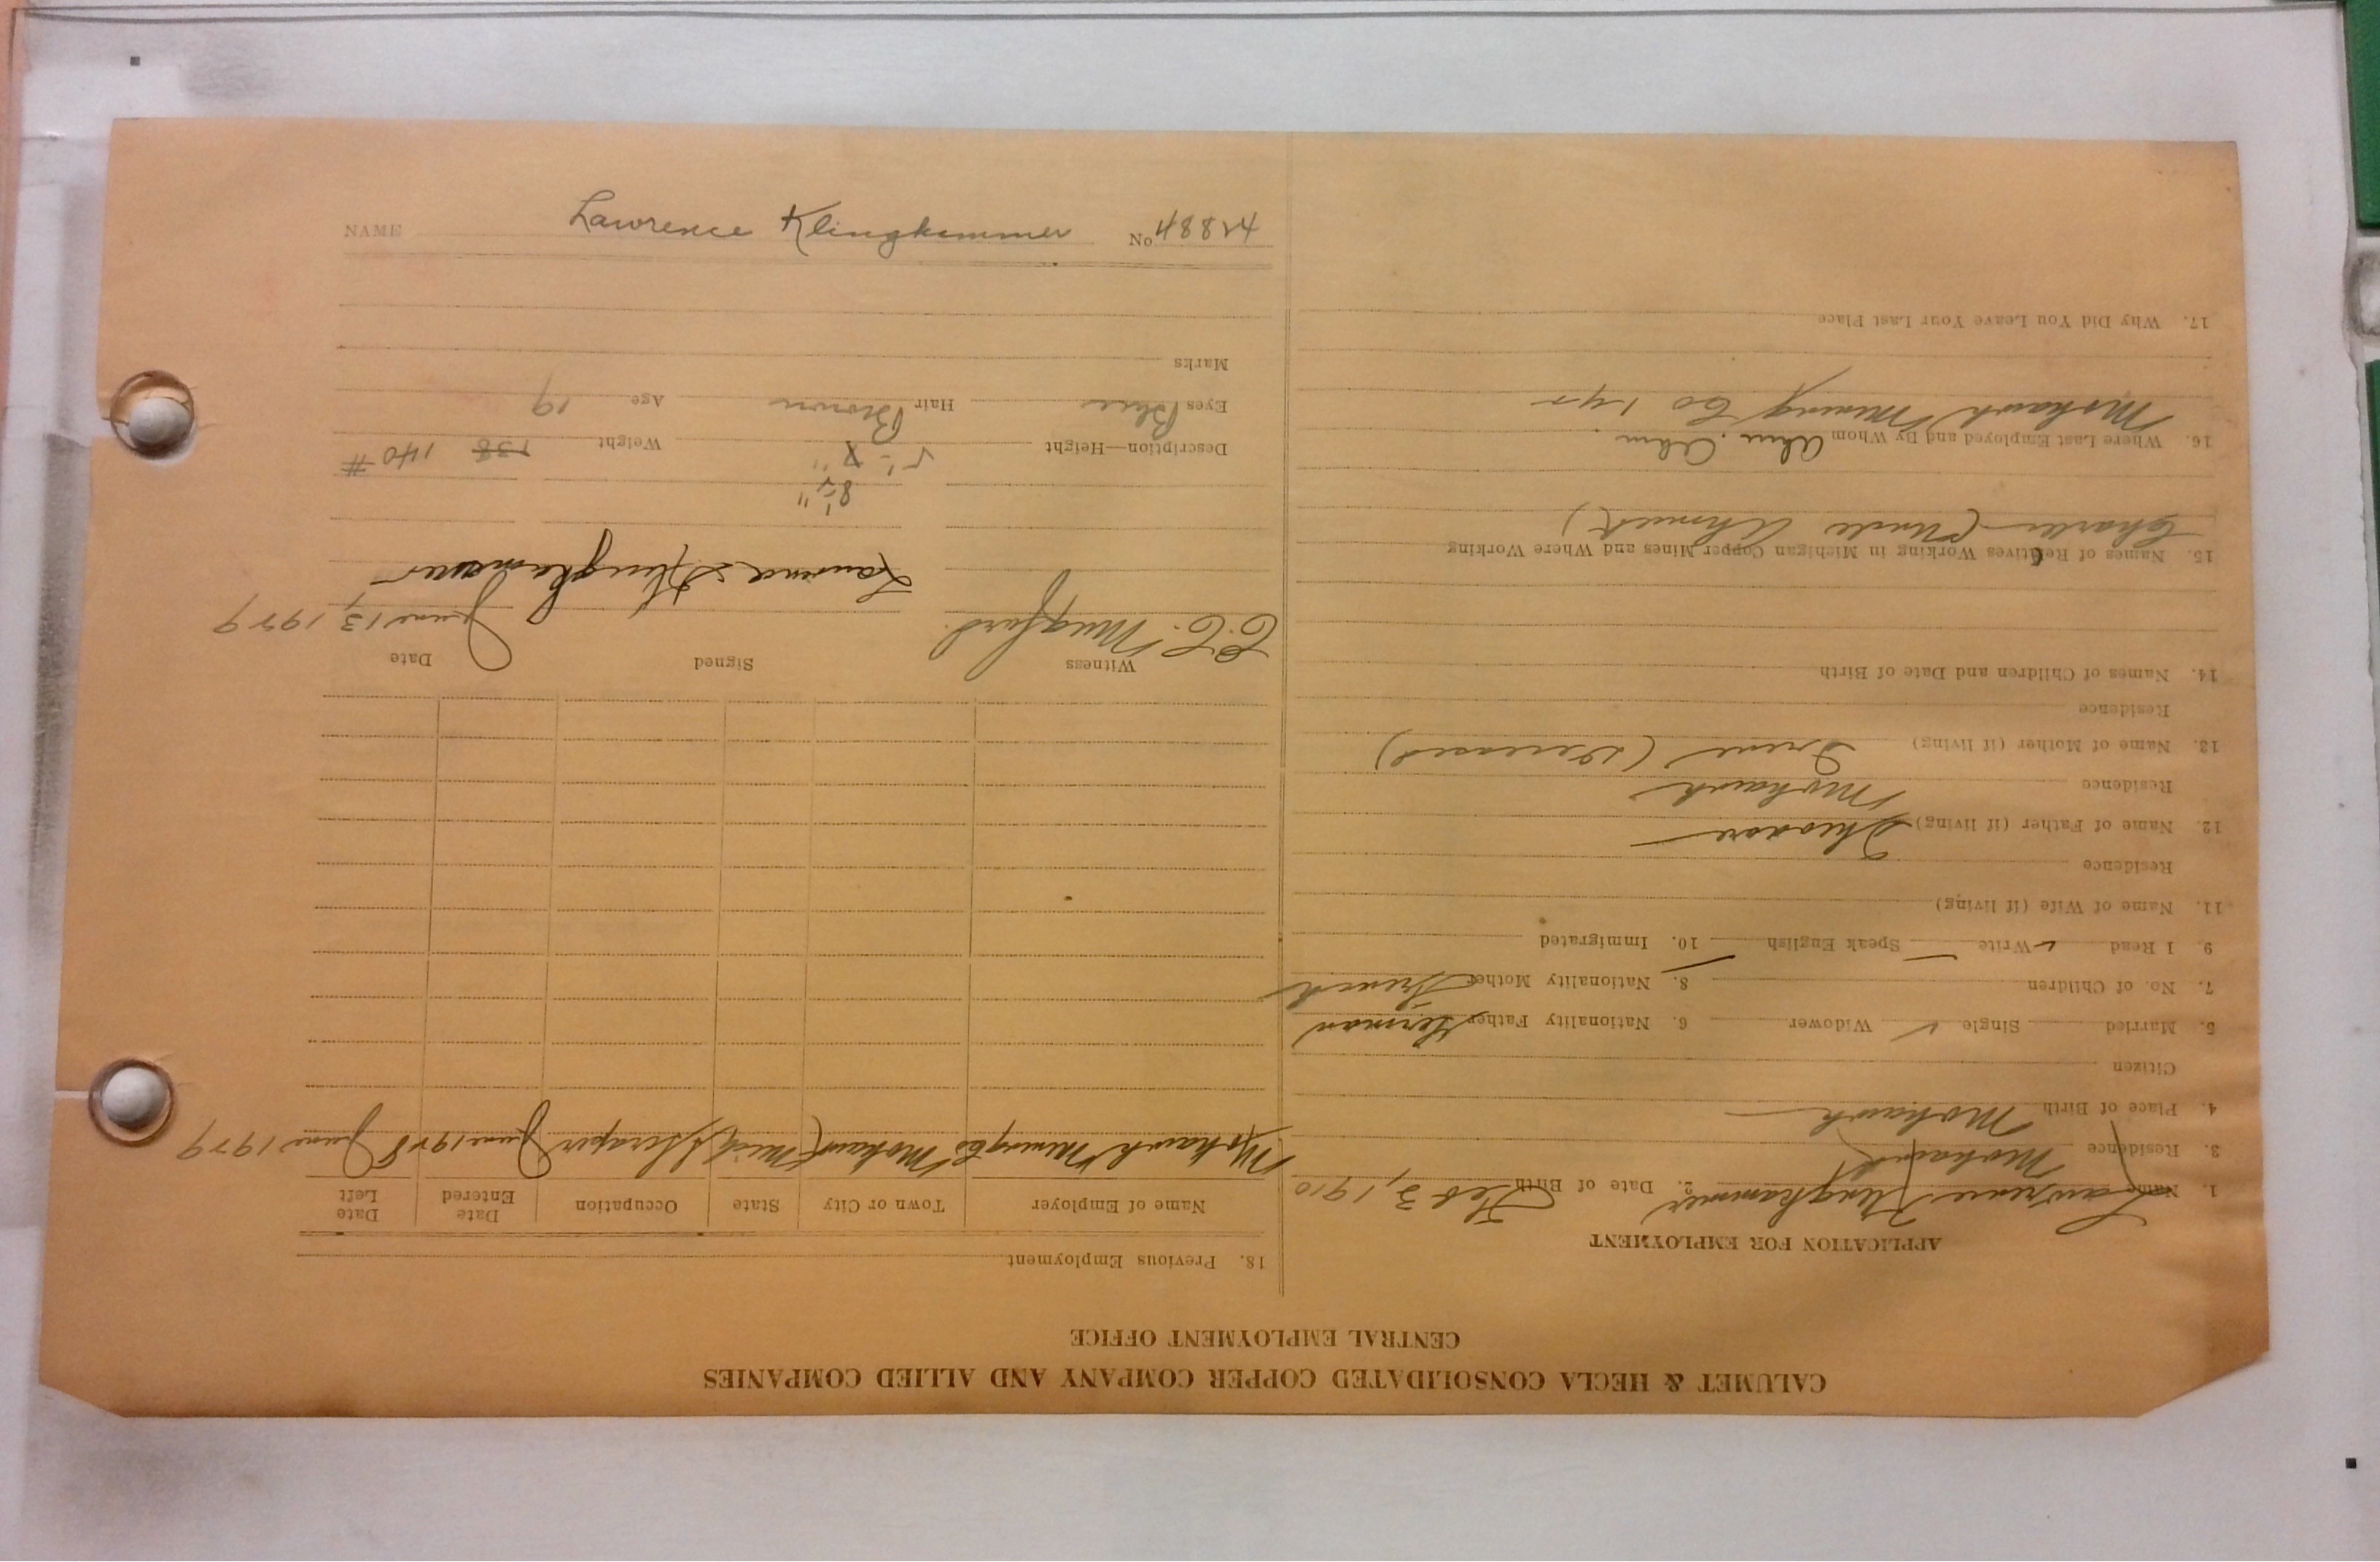 CALUMET & HECLA CONSOLIDATED COPPER COMPANY AND ALLIED COMPANIES
CENTRAL EMPLOYMENT OFFICE
APPLICATION FOR EMPLOYMENT
1. Name Lawrence Klingkammer 2. Date of Birth Feb 3, 1910
3. Residence Mohawk
4. Place of Birth Mohawk
Citizen
5. Married Single ✓ Widower 6. Nationality Father German
7. No. of Children 8. Nationality Mother French
9. I Read ✓ Write Speak English 10. Immigrated
11. Name of Wife (if living)
Residence
12. Name of Father (if living) Theodore
Residence Mohawk
13. Name of Mother (if living) Irene (Deceased)
Residence
14. Names of Children and Date of Birth
15. Names of Relatives Working in Michigan Copper Mines and Where Working
Charles (Uncle Ahmeek)
16. Where Last Employed and By Whom
Mohawk Mining Co 1 yr
17. Why Did You Leave Your Last Place
18. Previous Employment
Name of Employer Town or City State Occupation Date Entered Date Left
Mohawk Mining Co Mohawk Mich Scraper June 1928 June 1929
Witness Signed Date
C.C. Mugford. Lawrence Klingkammer June 13, 1929
8½"
Description—Height 5'- Weight 138 140#
Eyes Blue Hair Brown Age 19
Marks
NAME Lawrence Klingkammer No 48824